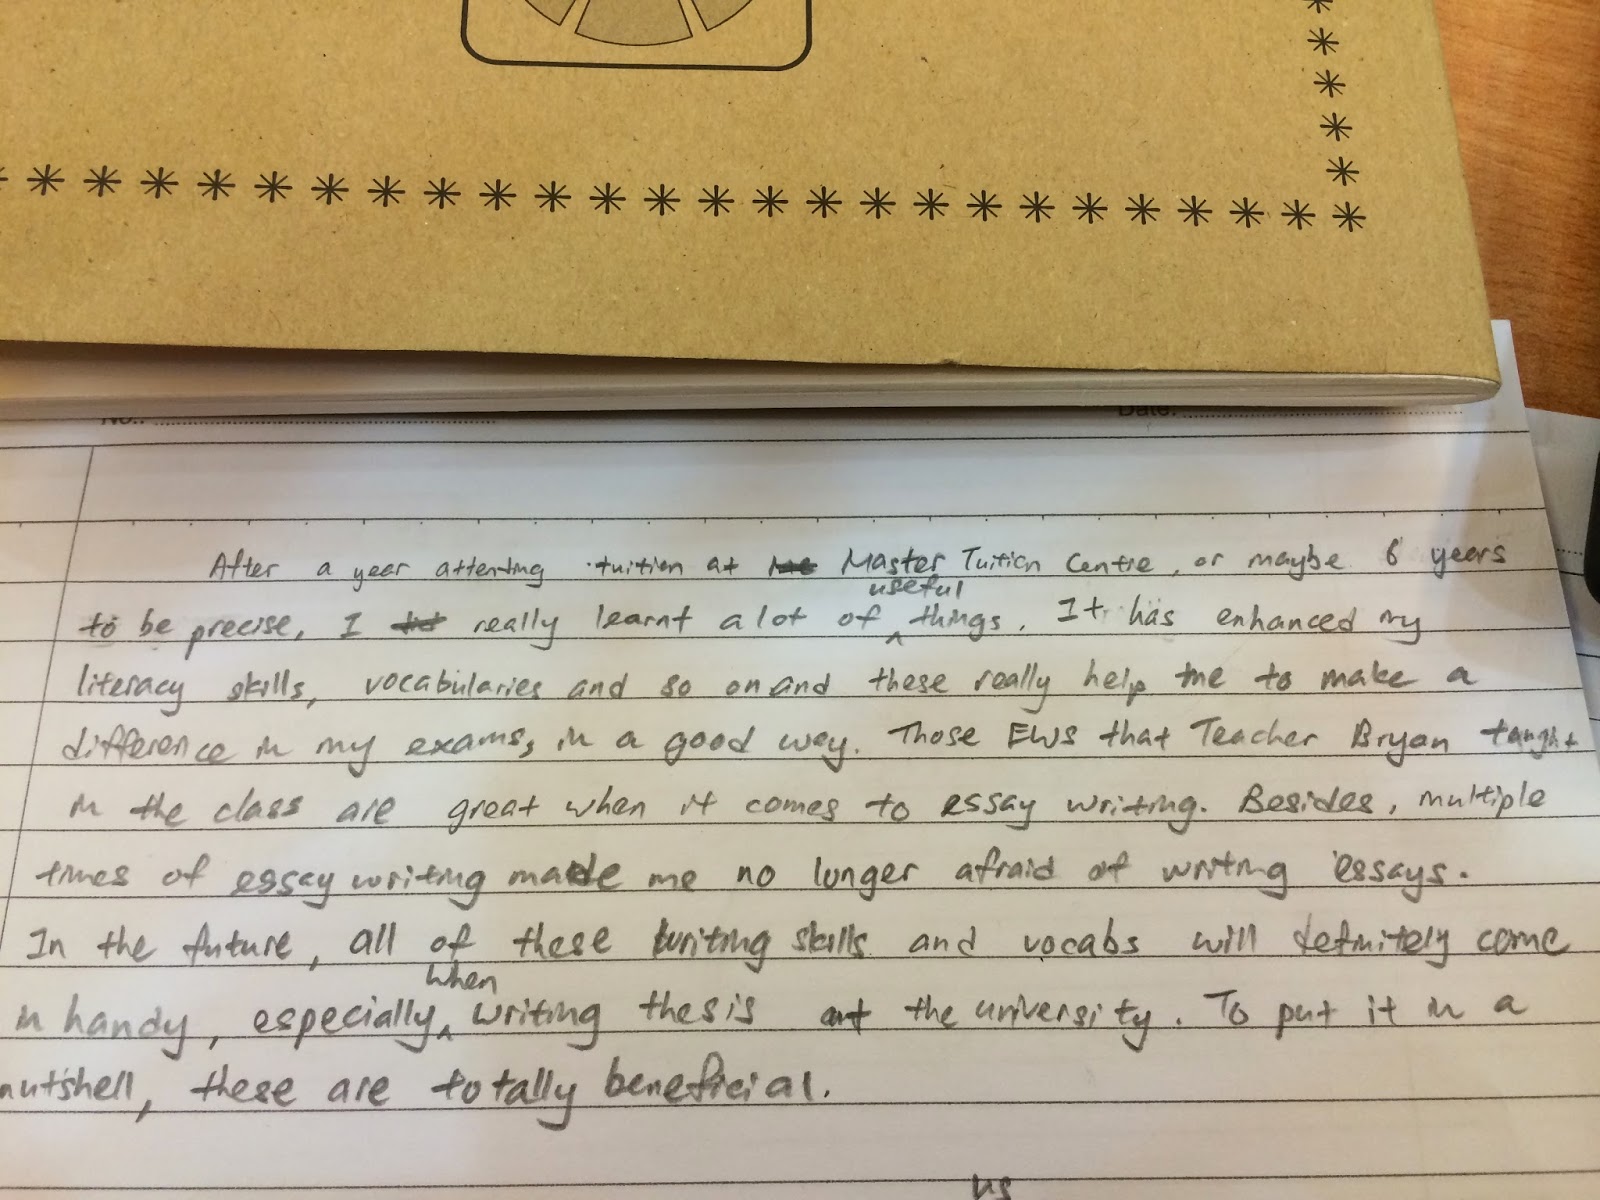 No.:
Date:
After a year attending tuition at Master Tuition Centre, or maybe 6 years
to be precise, I really learnt a lot of useful things. It has enhanced my
literacy skills, vocabularies and so on and these really help me to make a
difference in my exams, in a good way. Those EWS that Teacher Bryan taught
in the class are great when it comes to essay writing. Besides, multiple
times of essay writing made me no longer afraid of writing essays.
In the future, all of these writing skills and vocabs will definitely come
in handy, especially when writing thesis at the university. To put it in a
nutshell, these are totally beneficial.